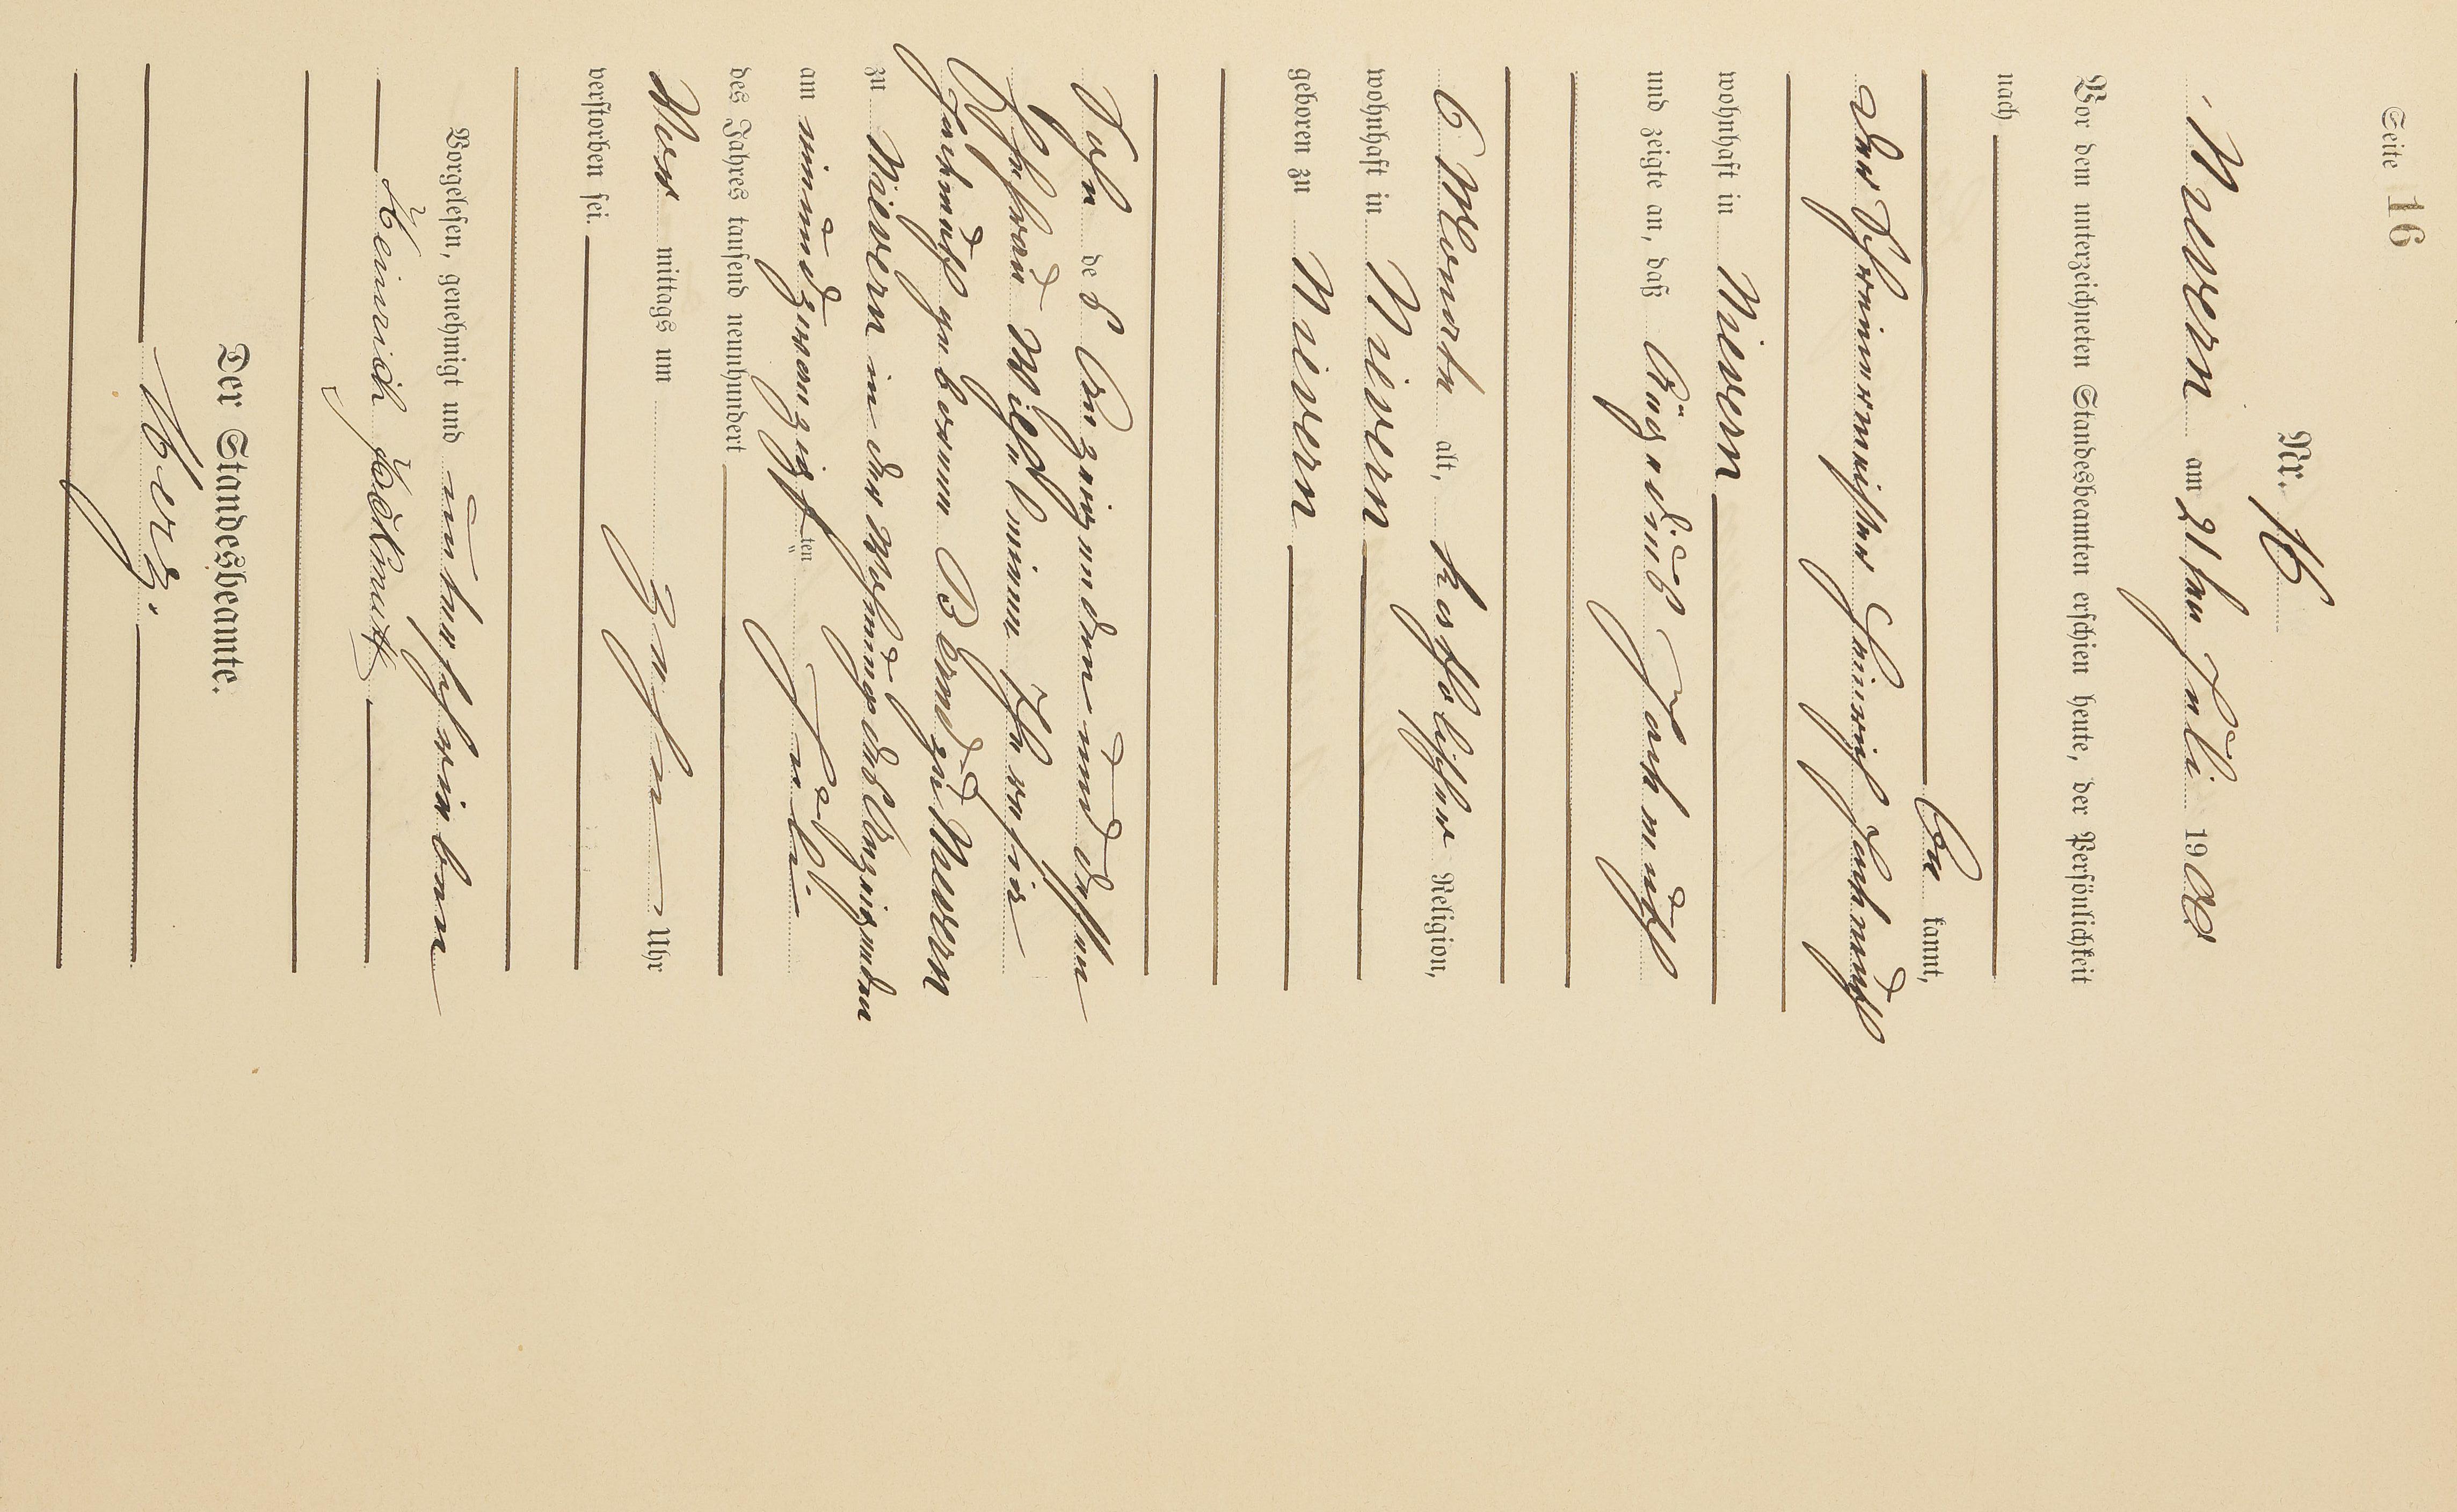 Seite 16
Nr. 16
Nievern am 21ten Juli 19 08
Vor dem unterzeichneten Standesbeamten erschien heute, der Persönlichkeit
nach
be kannt,
der Schreinermeister Heinrich Jachmuth
wohnhaft in Nievern
und zeigte an, daß Jachmuth
6 Monate alt, katholischer Religion,
wohnhaft in Nievern
geboren zu Nievern
Sohn des Anzeigenden und dessen
Ehefrau
Jachmuth geborenen Bernd zu Nievern
zu Nievern in der Wohnung des Anzeigenden
am einundzwanzigsten Juli
des Jahres tausend neunhundert
Vor mittags um zehn Uhr
verstorben sei.
Vorgelesen, genehmigt und unterschrieben
Heinrich Jachmuth
Der Standesbeamte.
Herz.